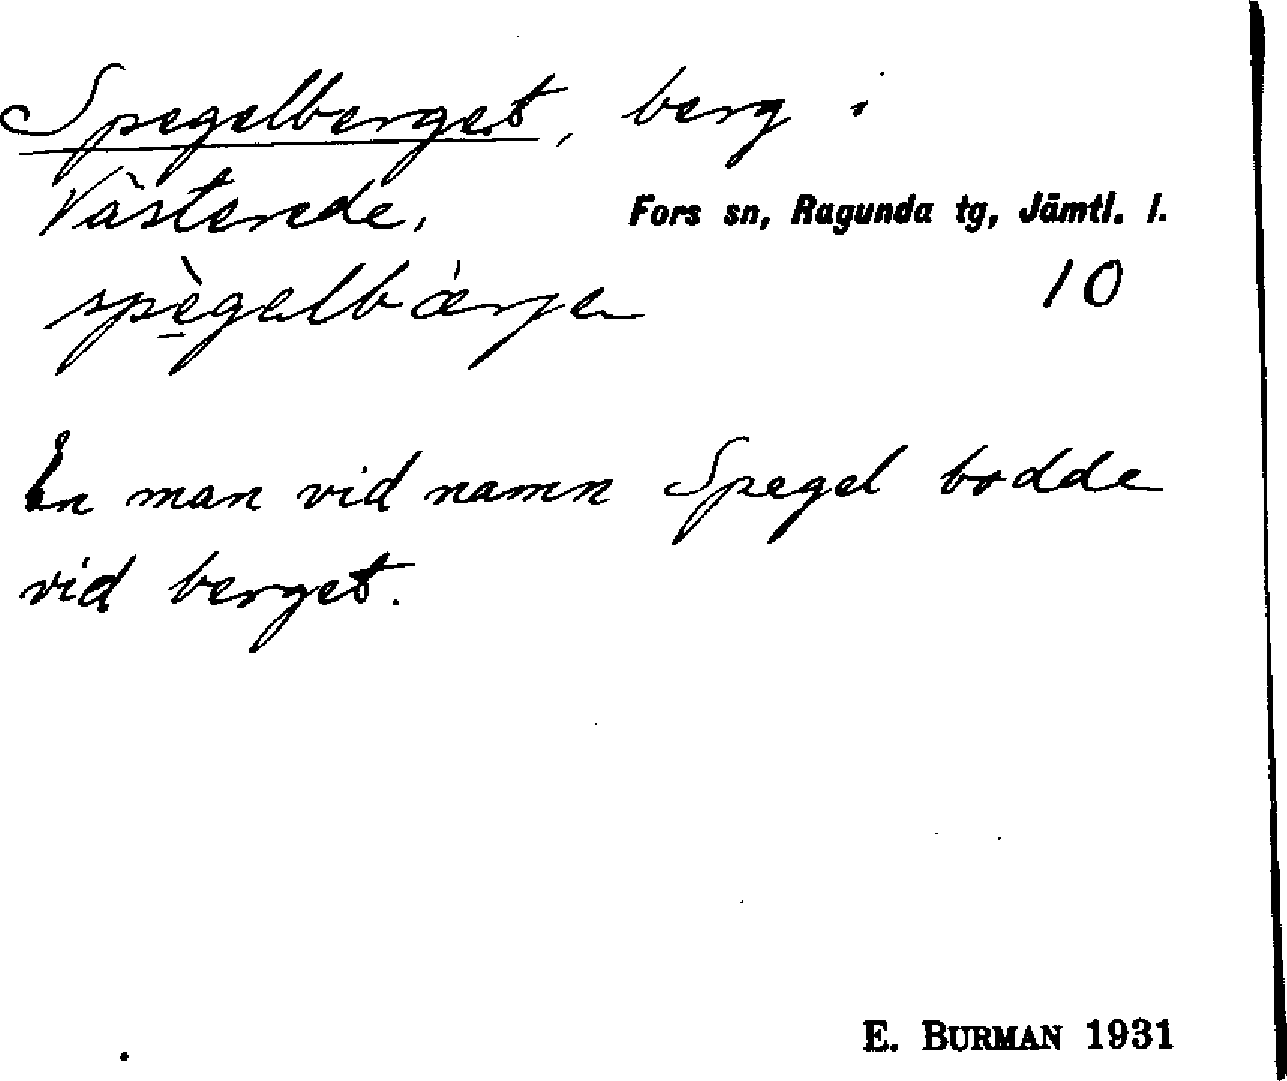 Spegelberget, berg i
Västerede.
Fors sn, Ragunda tg, Jämtl. l.
spègelbárje
10
En man vid namn Spegel bodde
vid berget.
E. BURMAN 1931